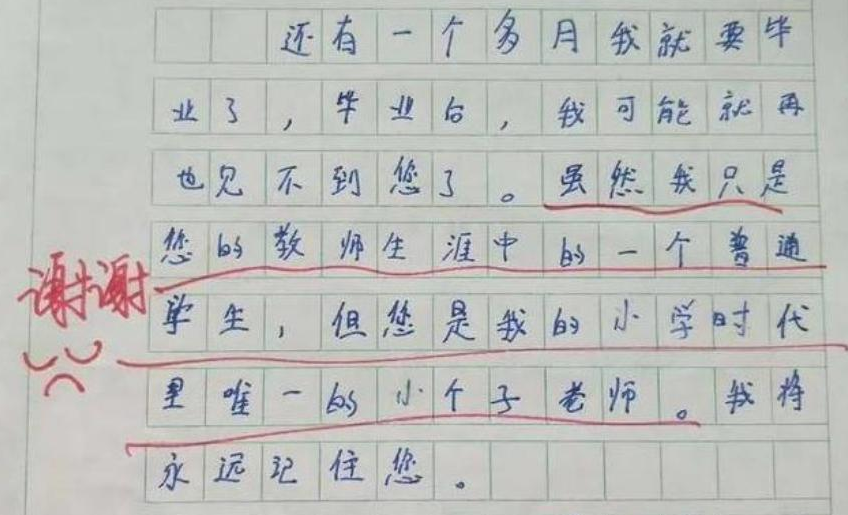 还有一个多月我就要毕
业了，毕业后，我可能就再
也见不到您了。虽然我只是
您的教师生涯中的一个普通
谢谢
学生，但您是我的小学时代
里唯一的小个子老师。我将
永远记住您。